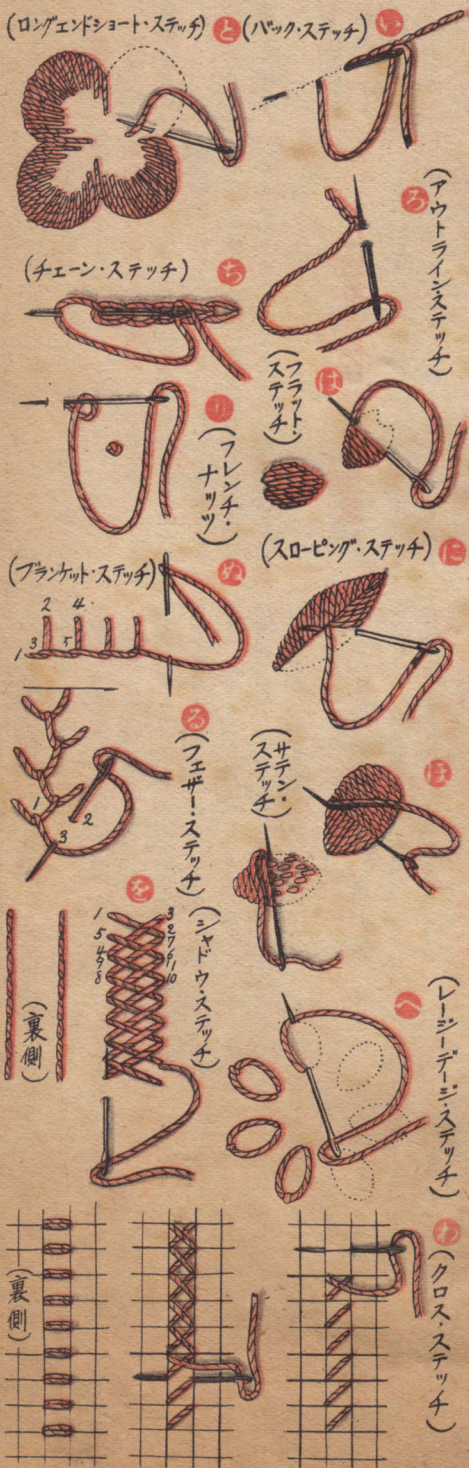 い
(バック・ステッチ)
ろ
(アウトライン・ステッチ)
は
(フラット・
ステッチ)
に
(スローピング・ステッチ)
ほ
(サテン・
ステッチ)
へ
(レージーデージ・ステッチ)
と
(ロングエンドショート・ステッチ)
ち
(チェーン・ステッチ)
り
(フレンチ・
ナッツ)
ぬ
(ブランケット・ステッチ)
2 4
1 3 5
る
(フェザー・ステッチ)
1
2
3
を
(シャドウ・ステッチ)
1 3
5 2
4 7
9 6
8 10
(裏側)
わ
(クロス・ステッチ)
(裏側)